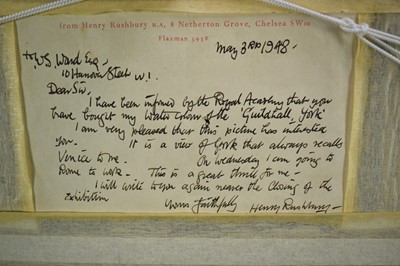 from Henry Rushbury R.A., 8 Netherton Grove, Chelsea SW10
Flaxman 5938
May 3RD 1948.
to, W.S. Ward Esq.,
10 Hanover Street W.1.
Dear Sir,
I have been informed by the Royal Academy that you
have bought my water colour of the 'Guildhall, York'
I am very pleased that this picture has interested
you. It is a view of York that always recalls
Venice to me. On Wednesday I am going to
Rome to work. This is a great thrill for me -
I will write to you again nearer the closing of the
exhibition
Yours faithfully
Henry Rushbury -